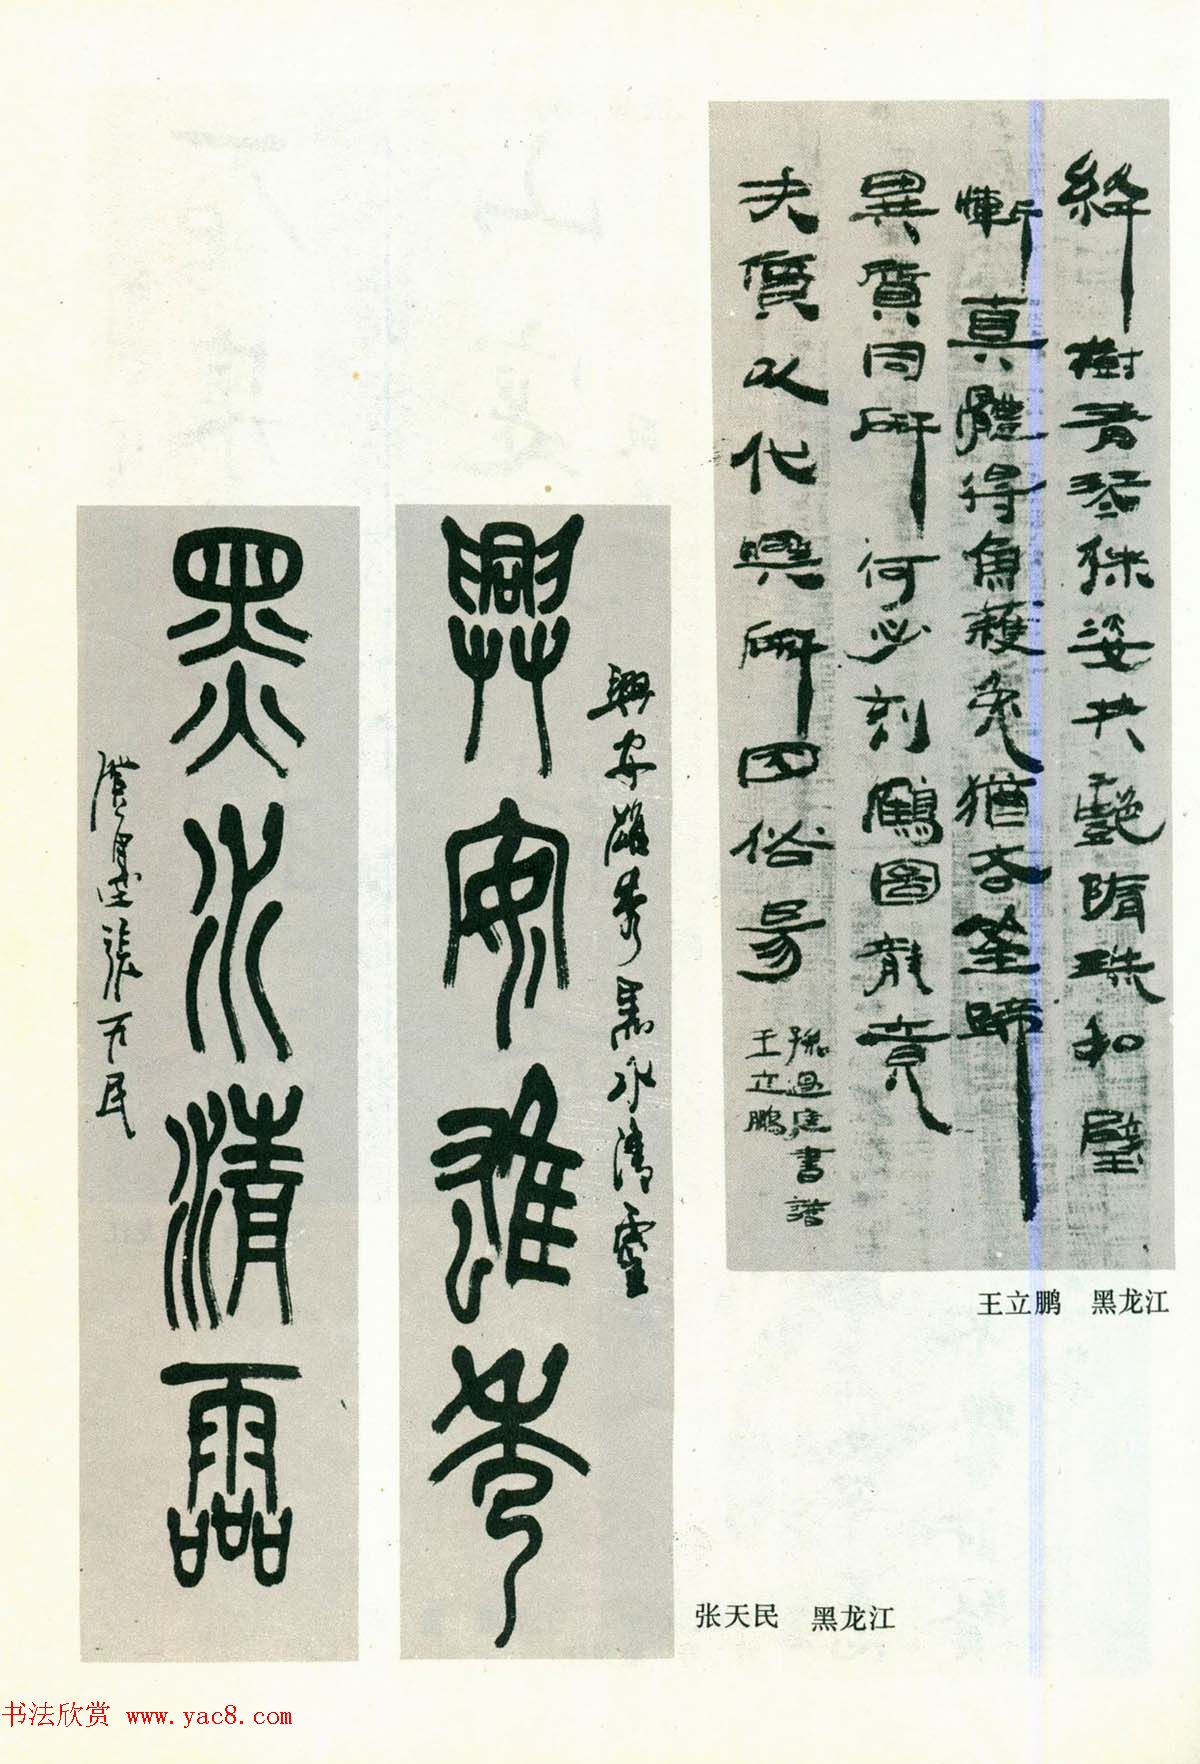 絳樹青琴殊姿共艷隋珠和璧
慚真體得魚獲兔猶吝筌蹄
異質同妍何必刻鶴圖龍竟
夫質以代興妍因俗易
孫過庭書譜
王立鵬
王立鹏 黑龙江
興安雄秀黑水清靈
興安雄秀
黑水清霝
張天民
张天民 黑龙江
书法欣赏 www.yac8.com